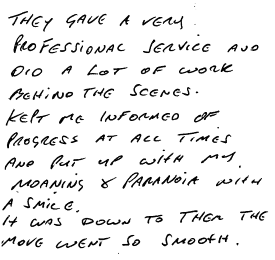 THEY GAVE A VERY
PROFESSIONAL SERVICE AND
DID A LOT OF WORK
BEHIND THE SCENES.
KEPT ME INFORMED OF
PROGRESS AT ALL TIMES
AND PUT UP WITH MY
MOANING & PARANOIA WITH
A SMILE.
IT WAS DOWN TO THEM THE
MOVE WENT SO SMOOTH.